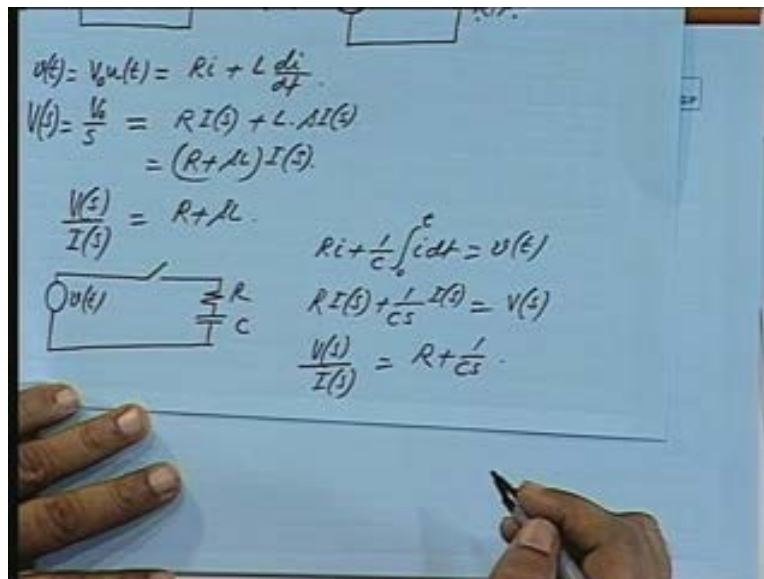 v(t) = V₀u(t) = Ri + L di/dt.
V(s) = V₀/s = R I(s) + L·s I(s)
= (R + sL) I(s).
V(s)/I(s) = R + sL.
v(t)
R
C
Ri + 1/C ∫₀ᵗ i dt = v(t)
R I(s) + 1/Cs I(s) = V(s)
V(s)/I(s) = R + 1/Cs.